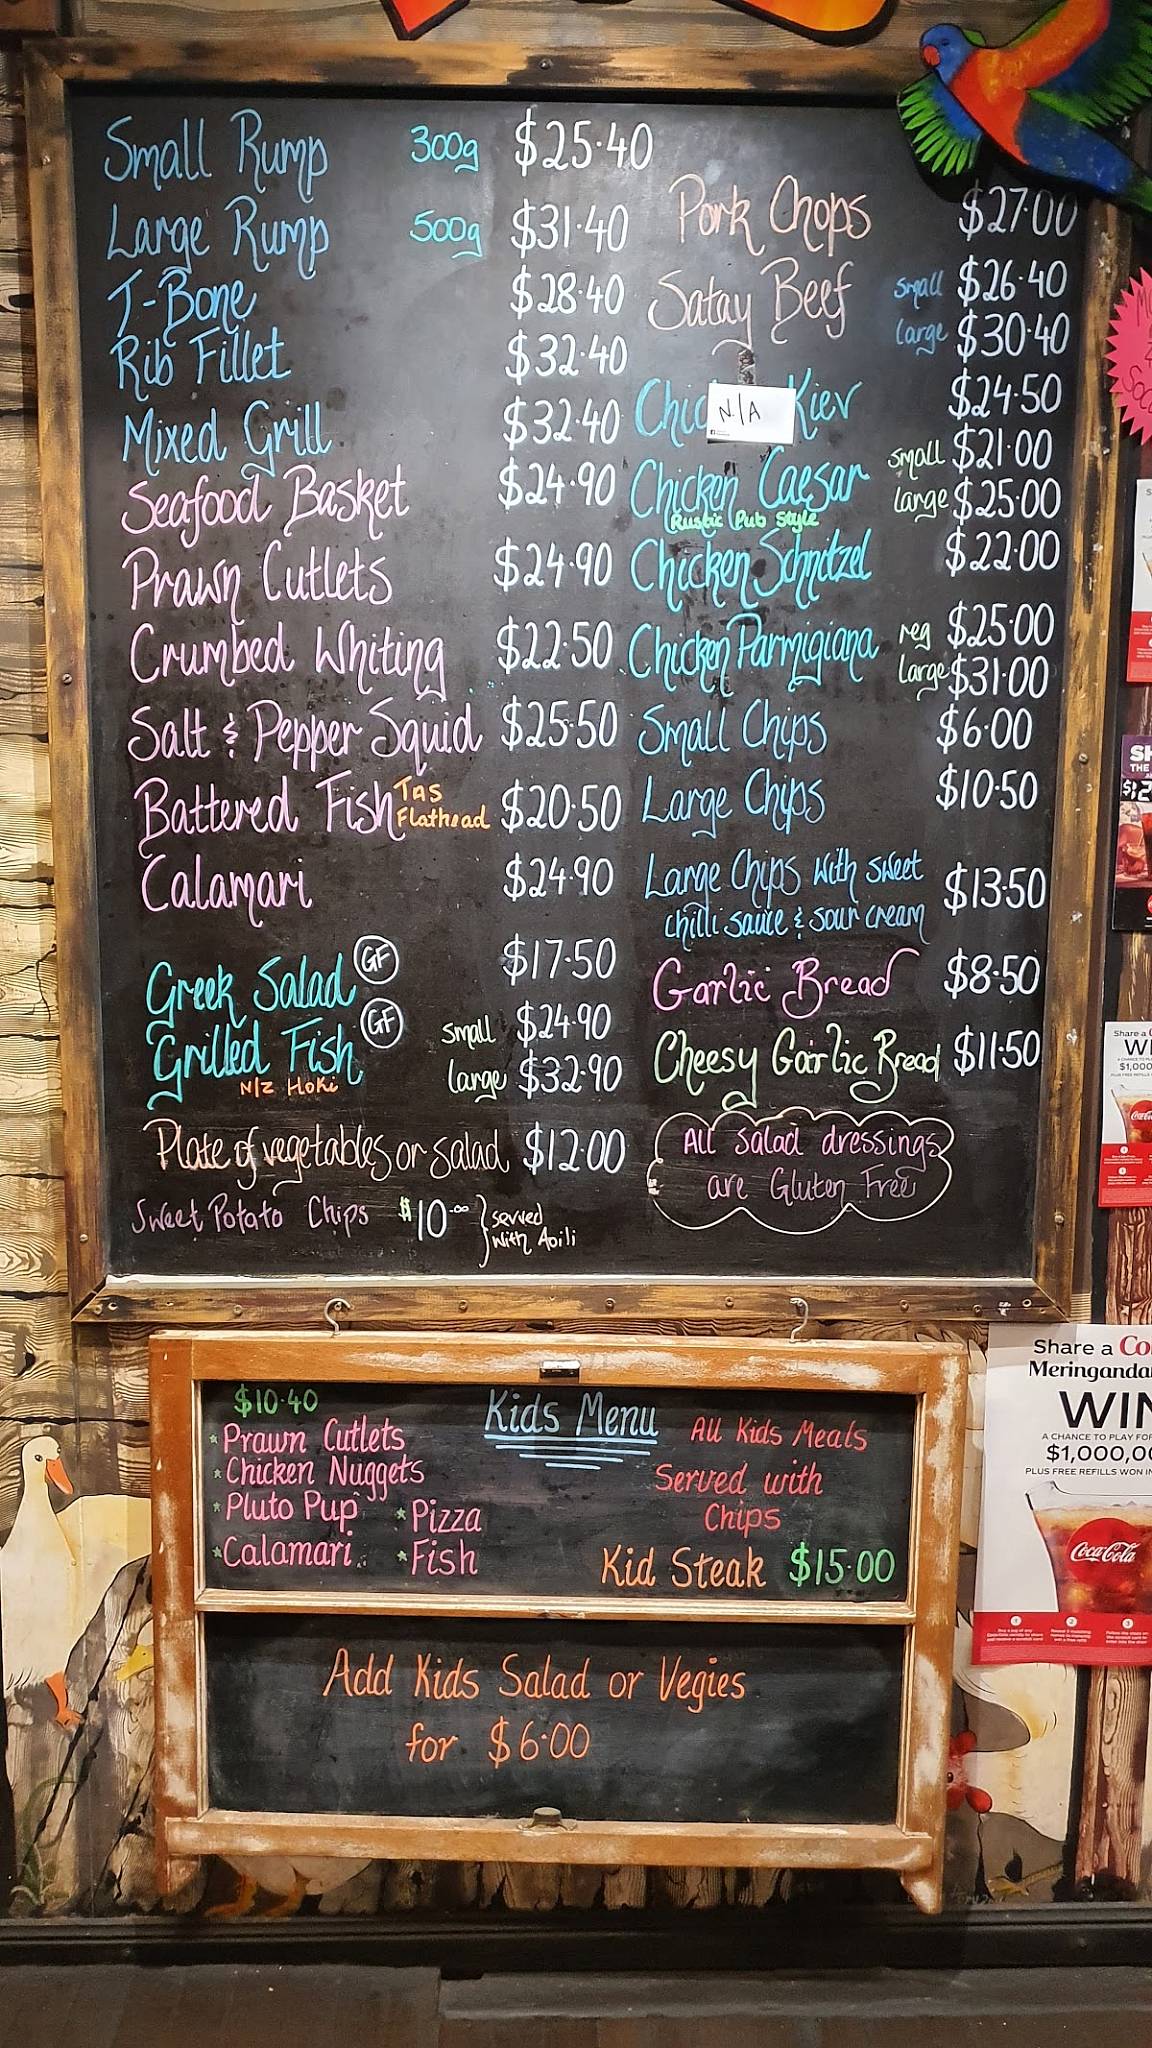 Small Rump 300g $25.40
Large Rump 500g $31.40
T-Bone $28.40
Rib Fillet $32.40
Mixed Grill $32.40
Seafood Basket $24.90
Prawn Cutlets $24.90
Crumbed Whiting $22.50
Salt & Pepper Squid $25.50
Battered Fish Tas Flathead $20.50
Calamari $24.90
Greek Salad GF $17.50
Grilled Fish GF small $24.90
N/Z Hoki large $32.90
Plate of vegetables or salad $12.00
Sweet Potato Chips $10.00 served with Aoili
Pork Chops $27.00
Satay Beef small $26.40
large $30.40
Chic N/A Kiev $24.50
Chicken Caesar small $21.00
Rustic Pub Style large $25.00
Chicken Schnitzel $22.00
Chicken Parmigiana reg $25.00
Large $31.00
Small Chips $6.00
Large Chips $10.50
Large Chips with sweet
chilli sauce & sour cream $13.50
Garlic Bread $8.50
Cheesy Garlic Bread $11.50
All salad dressings
are Gluten Free
Kids Menu
$10.40
Prawn Cutlets
Chicken Nuggets
Pluto Pup
Calamari
Pizza
Fish
All Kids Meals
Served with
Chips
Kid Steak $15.00
Add Kids Salad or Vegies
for $6.00
Share a Co
Meringanda
WIN
A CHANCE TO PLAY FOR
$1,000,00
PLUS FREE REFILLS WON IN
Coca-Cola
Share a C
WI
$1,000
Coca-Cola
SH
THE